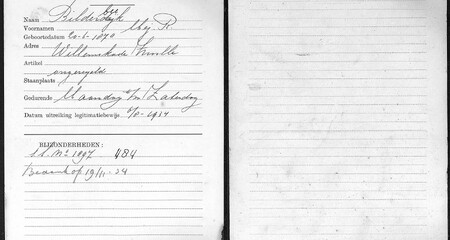 Naam Bilderdijk
Voornamen Mej. R.
Geboortedatum 20-6-1870
Adres Willemskade Zwolle
Artikel
ongeregeld
Staanplaats
Gedurende Maandag t/m Zaterdag
Datum uitreiking legitimatiebewijs 1934
BIJZONDERHEDEN:
1097 484
19/11-34